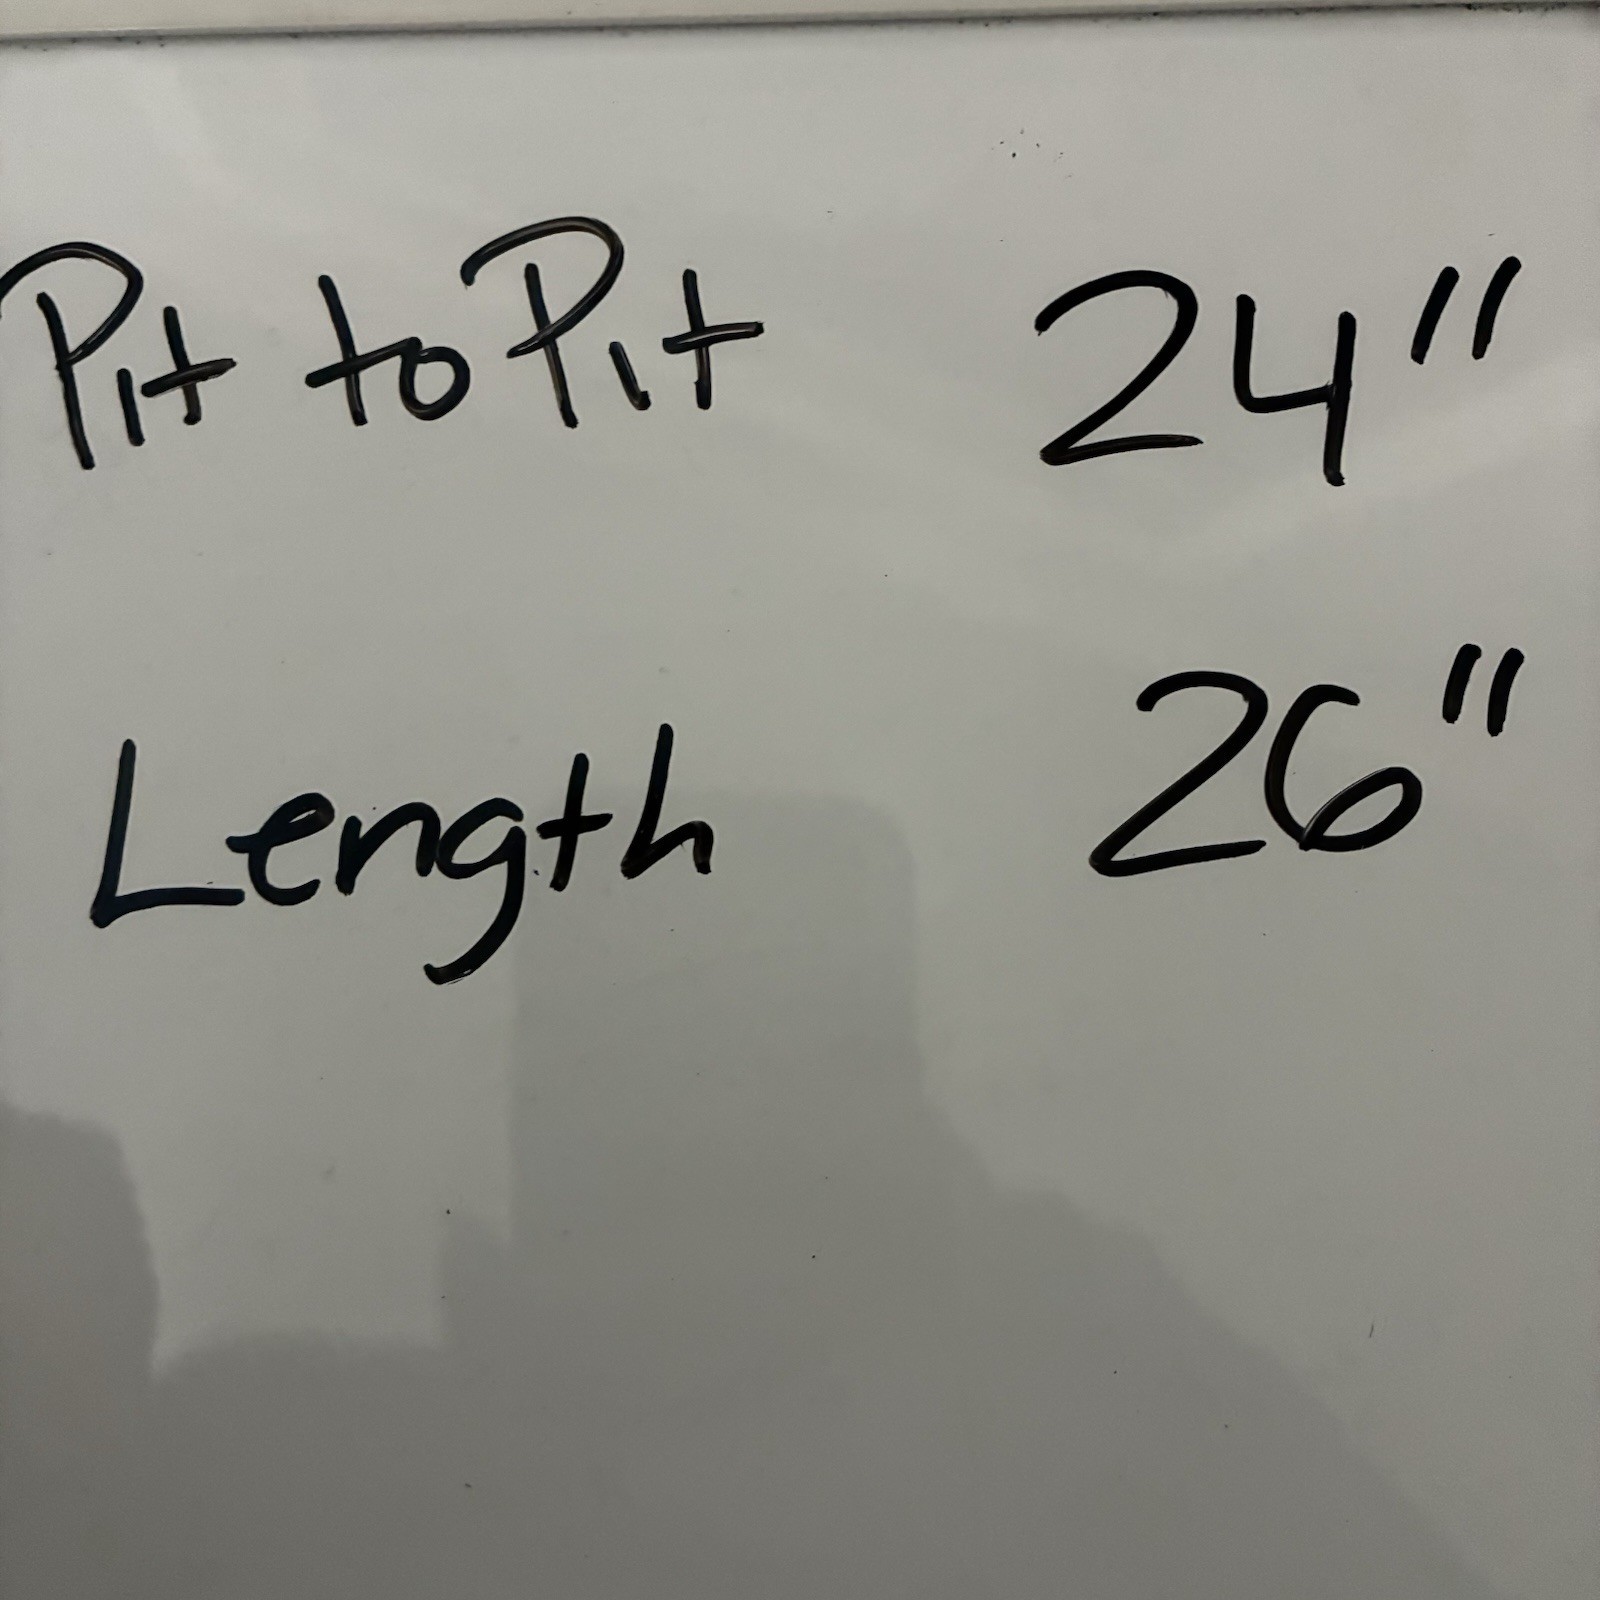 Pit to Pit 24"
Length 26"